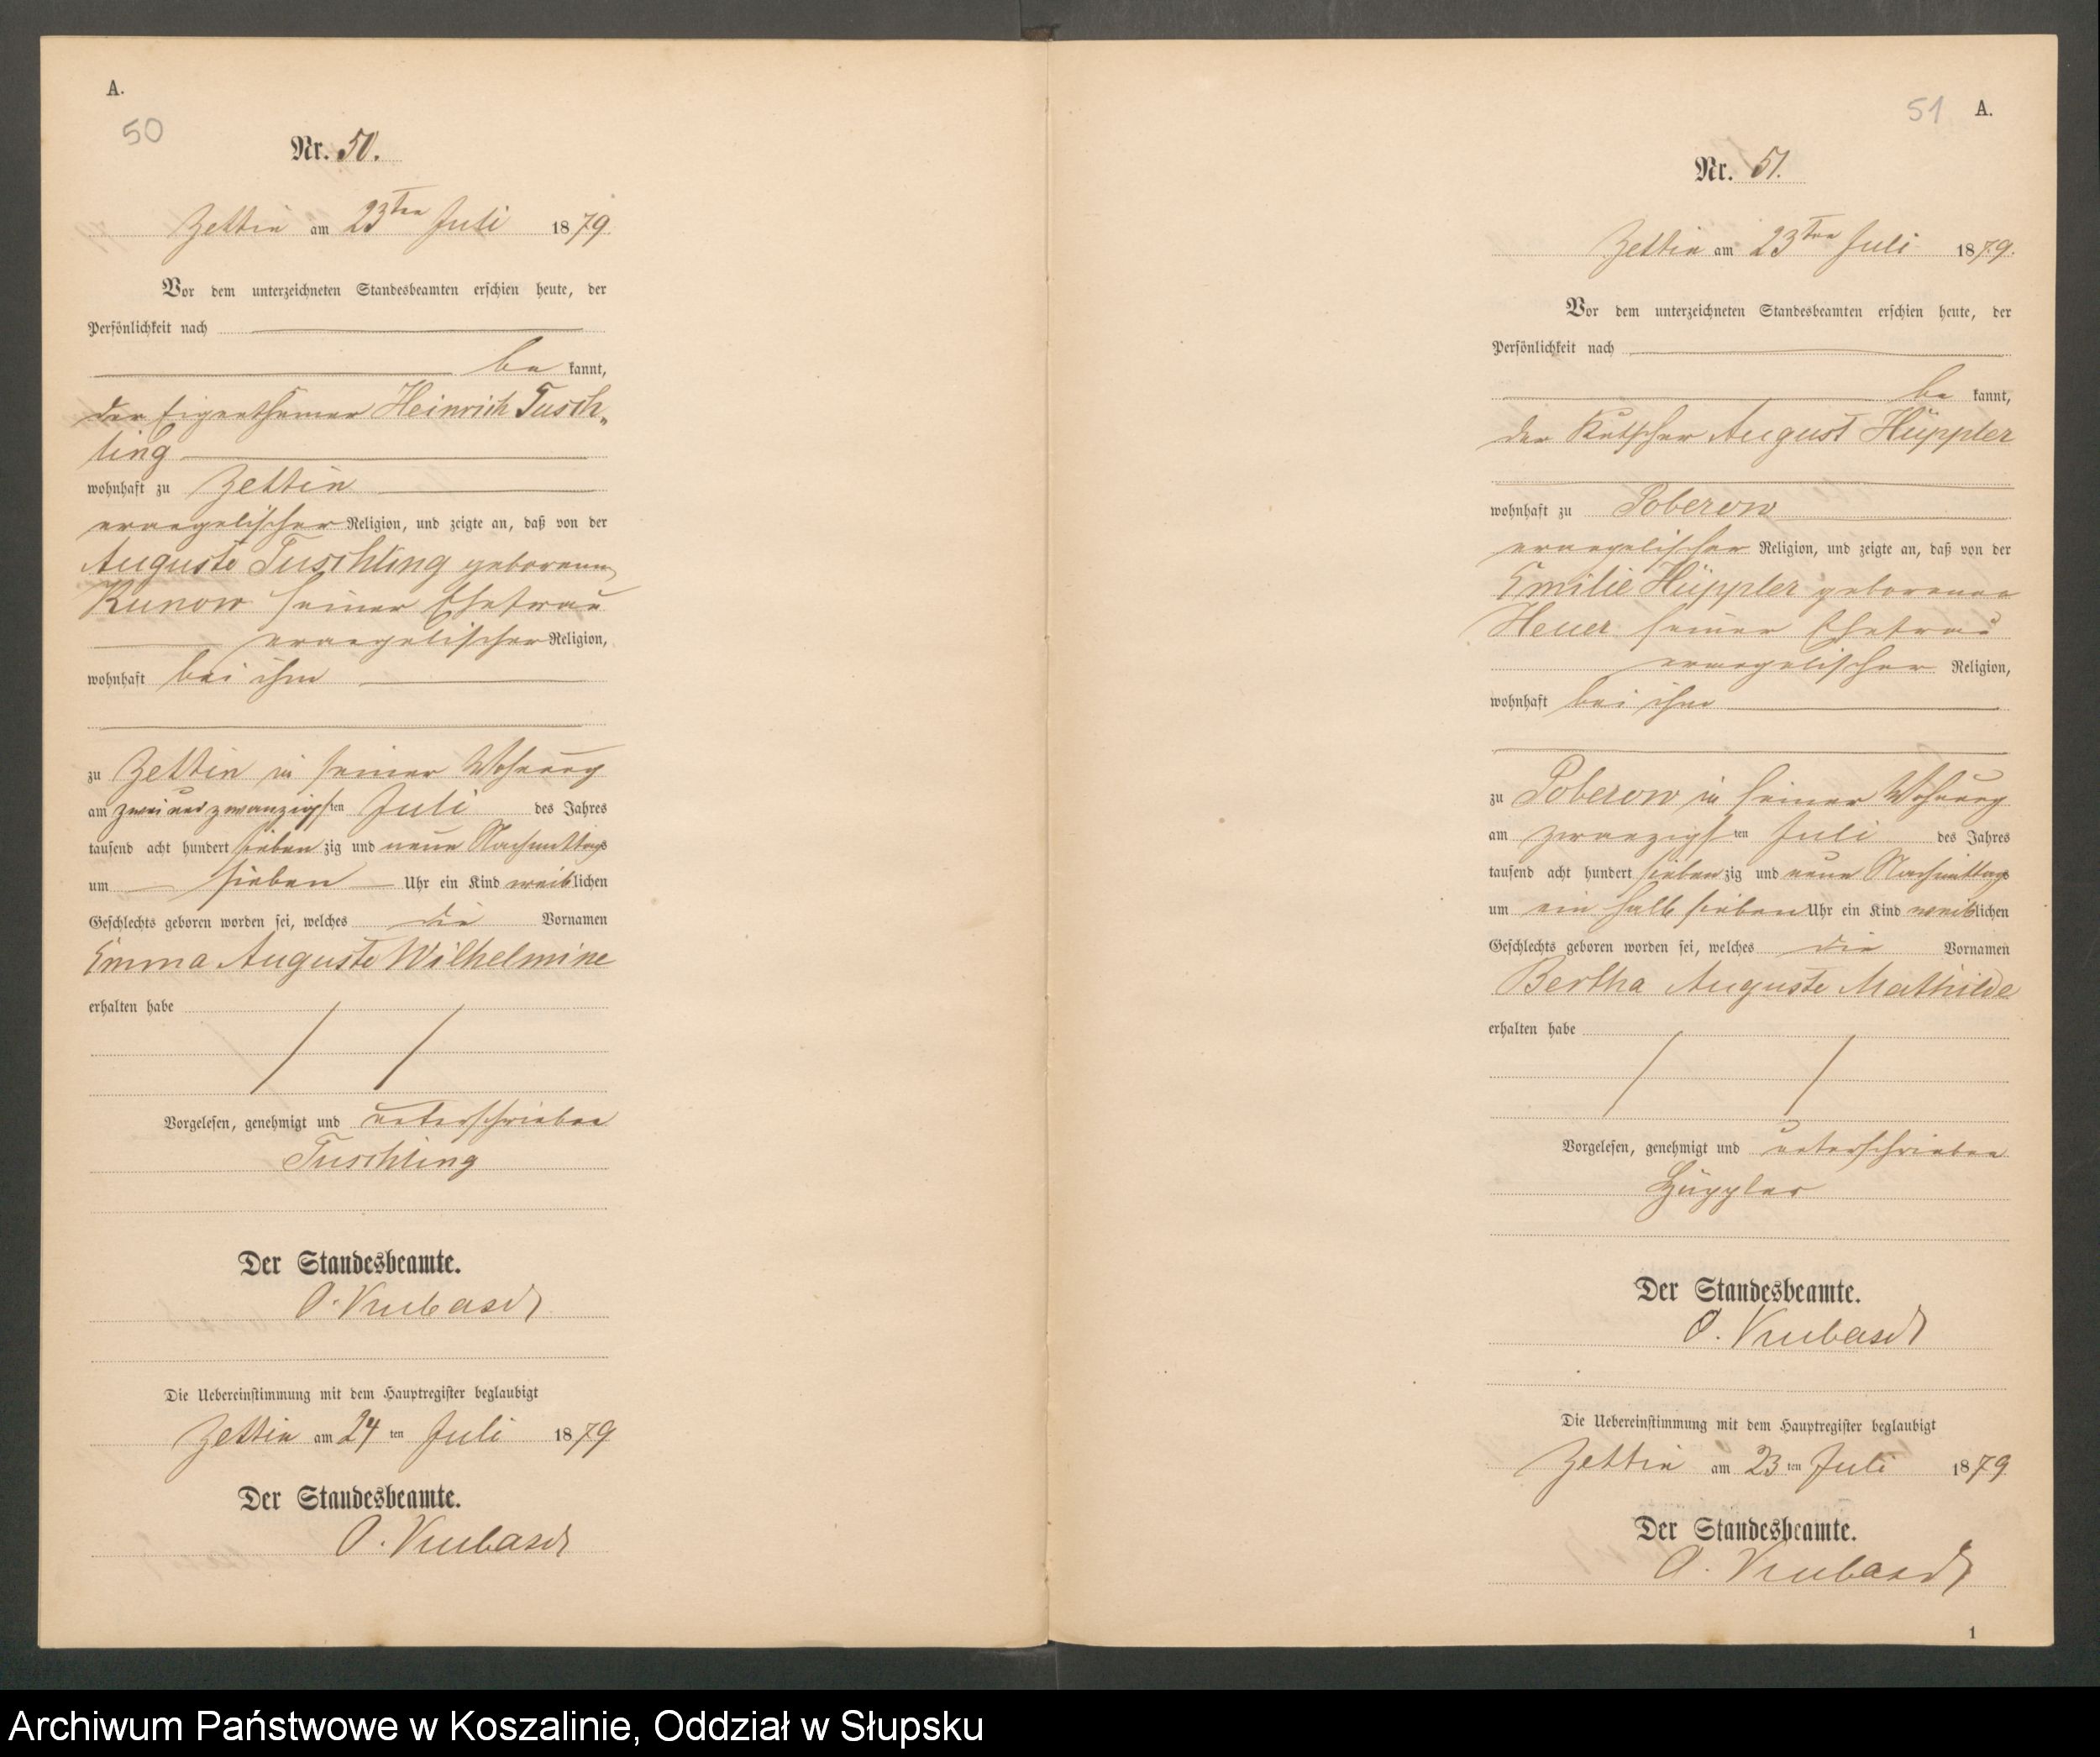 A.
50
Nr. 50.
Zettin am 23ten Juli 1879.
Vor dem unterzeichneten Standesbeamten erschien heute, der
Persönlichkeit nach
be kannt,
der Eigenthümer Heinrich Tusch-
ling
wohnhaft zu Zettin
evangelischer Religion, und zeigte an, daß von der
Auguste Tuschling geborenen
Kunow seiner Ehefrau
evangelischer Religion,
wohnhaft bei ihm
zu Zettin in seiner Wohnung
am zwei und zwanzigsten Juli des Jahres
tausend acht hundert siebenzig und neun Nachmittags
um sieben Uhr ein Kind weiblichen
Geschlechts geboren worden sei, welches die Vornamen
Emma Auguste Wilhelmine
erhalten habe
Vorgelesen, genehmigt und unterschrieben
Tuschling
Der Standesbeamte.
O.
Die Uebereinstimmung mit dem Hauptregister beglaubigt
Zettin am 24ten Juli 1879
Der Standesbeamte.
O.
51 A.
Nr. 51.
Zettin am 23ten Juli 1879.
Vor dem unterzeichneten Standesbeamten erschien heute, der
Persönlichkeit nach
be kannt,
der Kutscher August Hüppler
wohnhaft zu Poberow
evangelischer Religion, und zeigte an, daß von der
Emilie Hüppler geborenen
Heuer seiner Ehefrau
evangelischer Religion,
wohnhaft bei ihm
zu Poberow in seiner Wohnung
am zwanzigsten Juli des Jahres
tausend acht hundert siebenzig und neun Nachmittags
um ein halb sieben Uhr ein Kind weiblichen
Geschlechts geboren worden sei, welches die Vornamen
Bertha Auguste Mathilde
erhalten habe
Vorgelesen, genehmigt und unterschrieben
Hüppler
Der Standesbeamte.
O.
Die Uebereinstimmung mit dem Hauptregister beglaubigt
Zettin am 23ten Juli 1879
Der Standesbeamte.
O.
1
Archiwum Państwowe w Koszalinie, Oddział w Słupsku